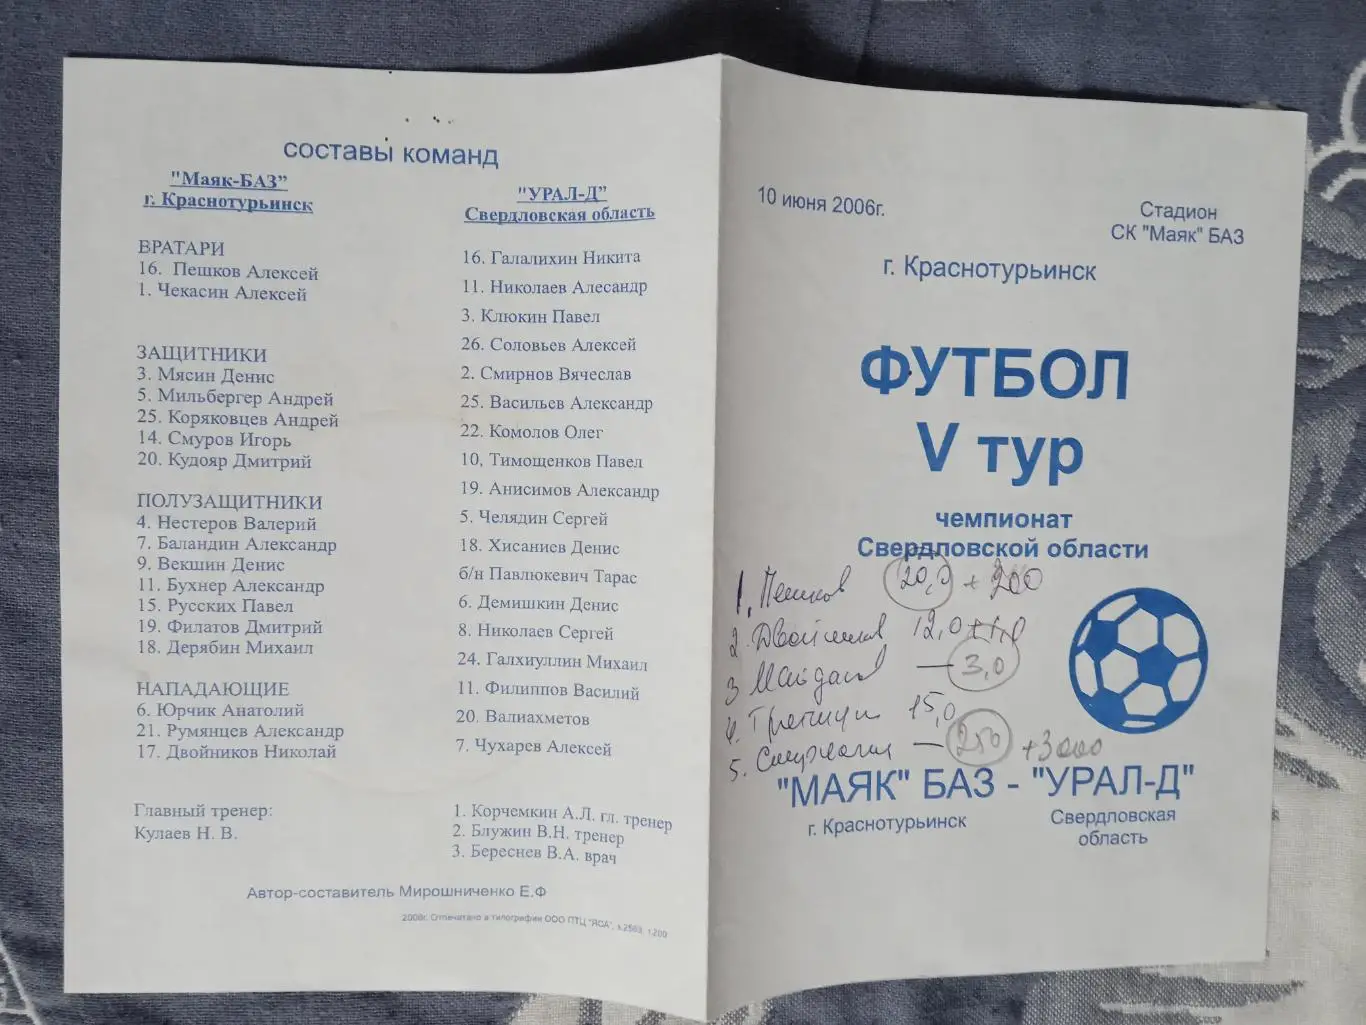 составы команд
"Маяк-БАЗ"
г. Краснотурьинск
ВРАТАРИ
16. Пешков Алексей
1. Чекасин Алексей
ЗАЩИТНИКИ
3. Мясин Денис
5. Мильбергер Андрей
25. Коряковцев Андрей
14. Смуров Игорь
20. Кудояр Дмитрий
ПОЛУЗАЩИТНИКИ
4. Нестеров Валерий
7. Баландин Александр
9. Векшин Денис
11. Бухнер Александр
15. Русских Павел
19. Филатов Дмитрий
18. Дерябин Михаил
НАПАДАЮЩИЕ
6. Юрчик Анатолий
21. Румянцев Александр
17. Двойников Николай
Главный тренер:
Кулаев Н. В.
"УРАЛ-Д"
Свердловская область
16. Галалихин Никита
11. Николаев Алесандр
3. Клюкин Павел
26. Соловьев Алексей
2. Смирнов Вячеслав
25. Васильев Александр
22. Комолов Олег
10, Тимощенков Павел
19. Анисимов Александр
5. Челядин Сергей
18. Хисаниев Денис
б/н Павлюкевич Тарас
6. Демишкин Денис
8. Николаев Сергей
24. Галхиуллин Михаил
11. Филиппов Василий
20. Валиахметов
7. Чухарев Алексей
1. Корчемкин А.Л. гл. тренер
2. Блужин В.Н. тренер
3. Береснев В.А. врач
Автор-составитель Мирошниченко Е.Ф
2006г. Отпечатано в типографии ООО ПТЦ "ЯСА", з.2569, т.200
10 июня 2006г.
Стадион
СК "Маяк" БАЗ
г. Краснотурьинск
ФУТБОЛ
V тур
чемпионат
Свердловской области
1. Пешков 20,0 + 200
2 Двойников 12,0 + 1,0
3 Майдан — 3,0
4. 15,0
5. — 250 + 3000
"МАЯК" БАЗ - "УРАЛ-Д"
г. Краснотурьинск
Свердловская
область